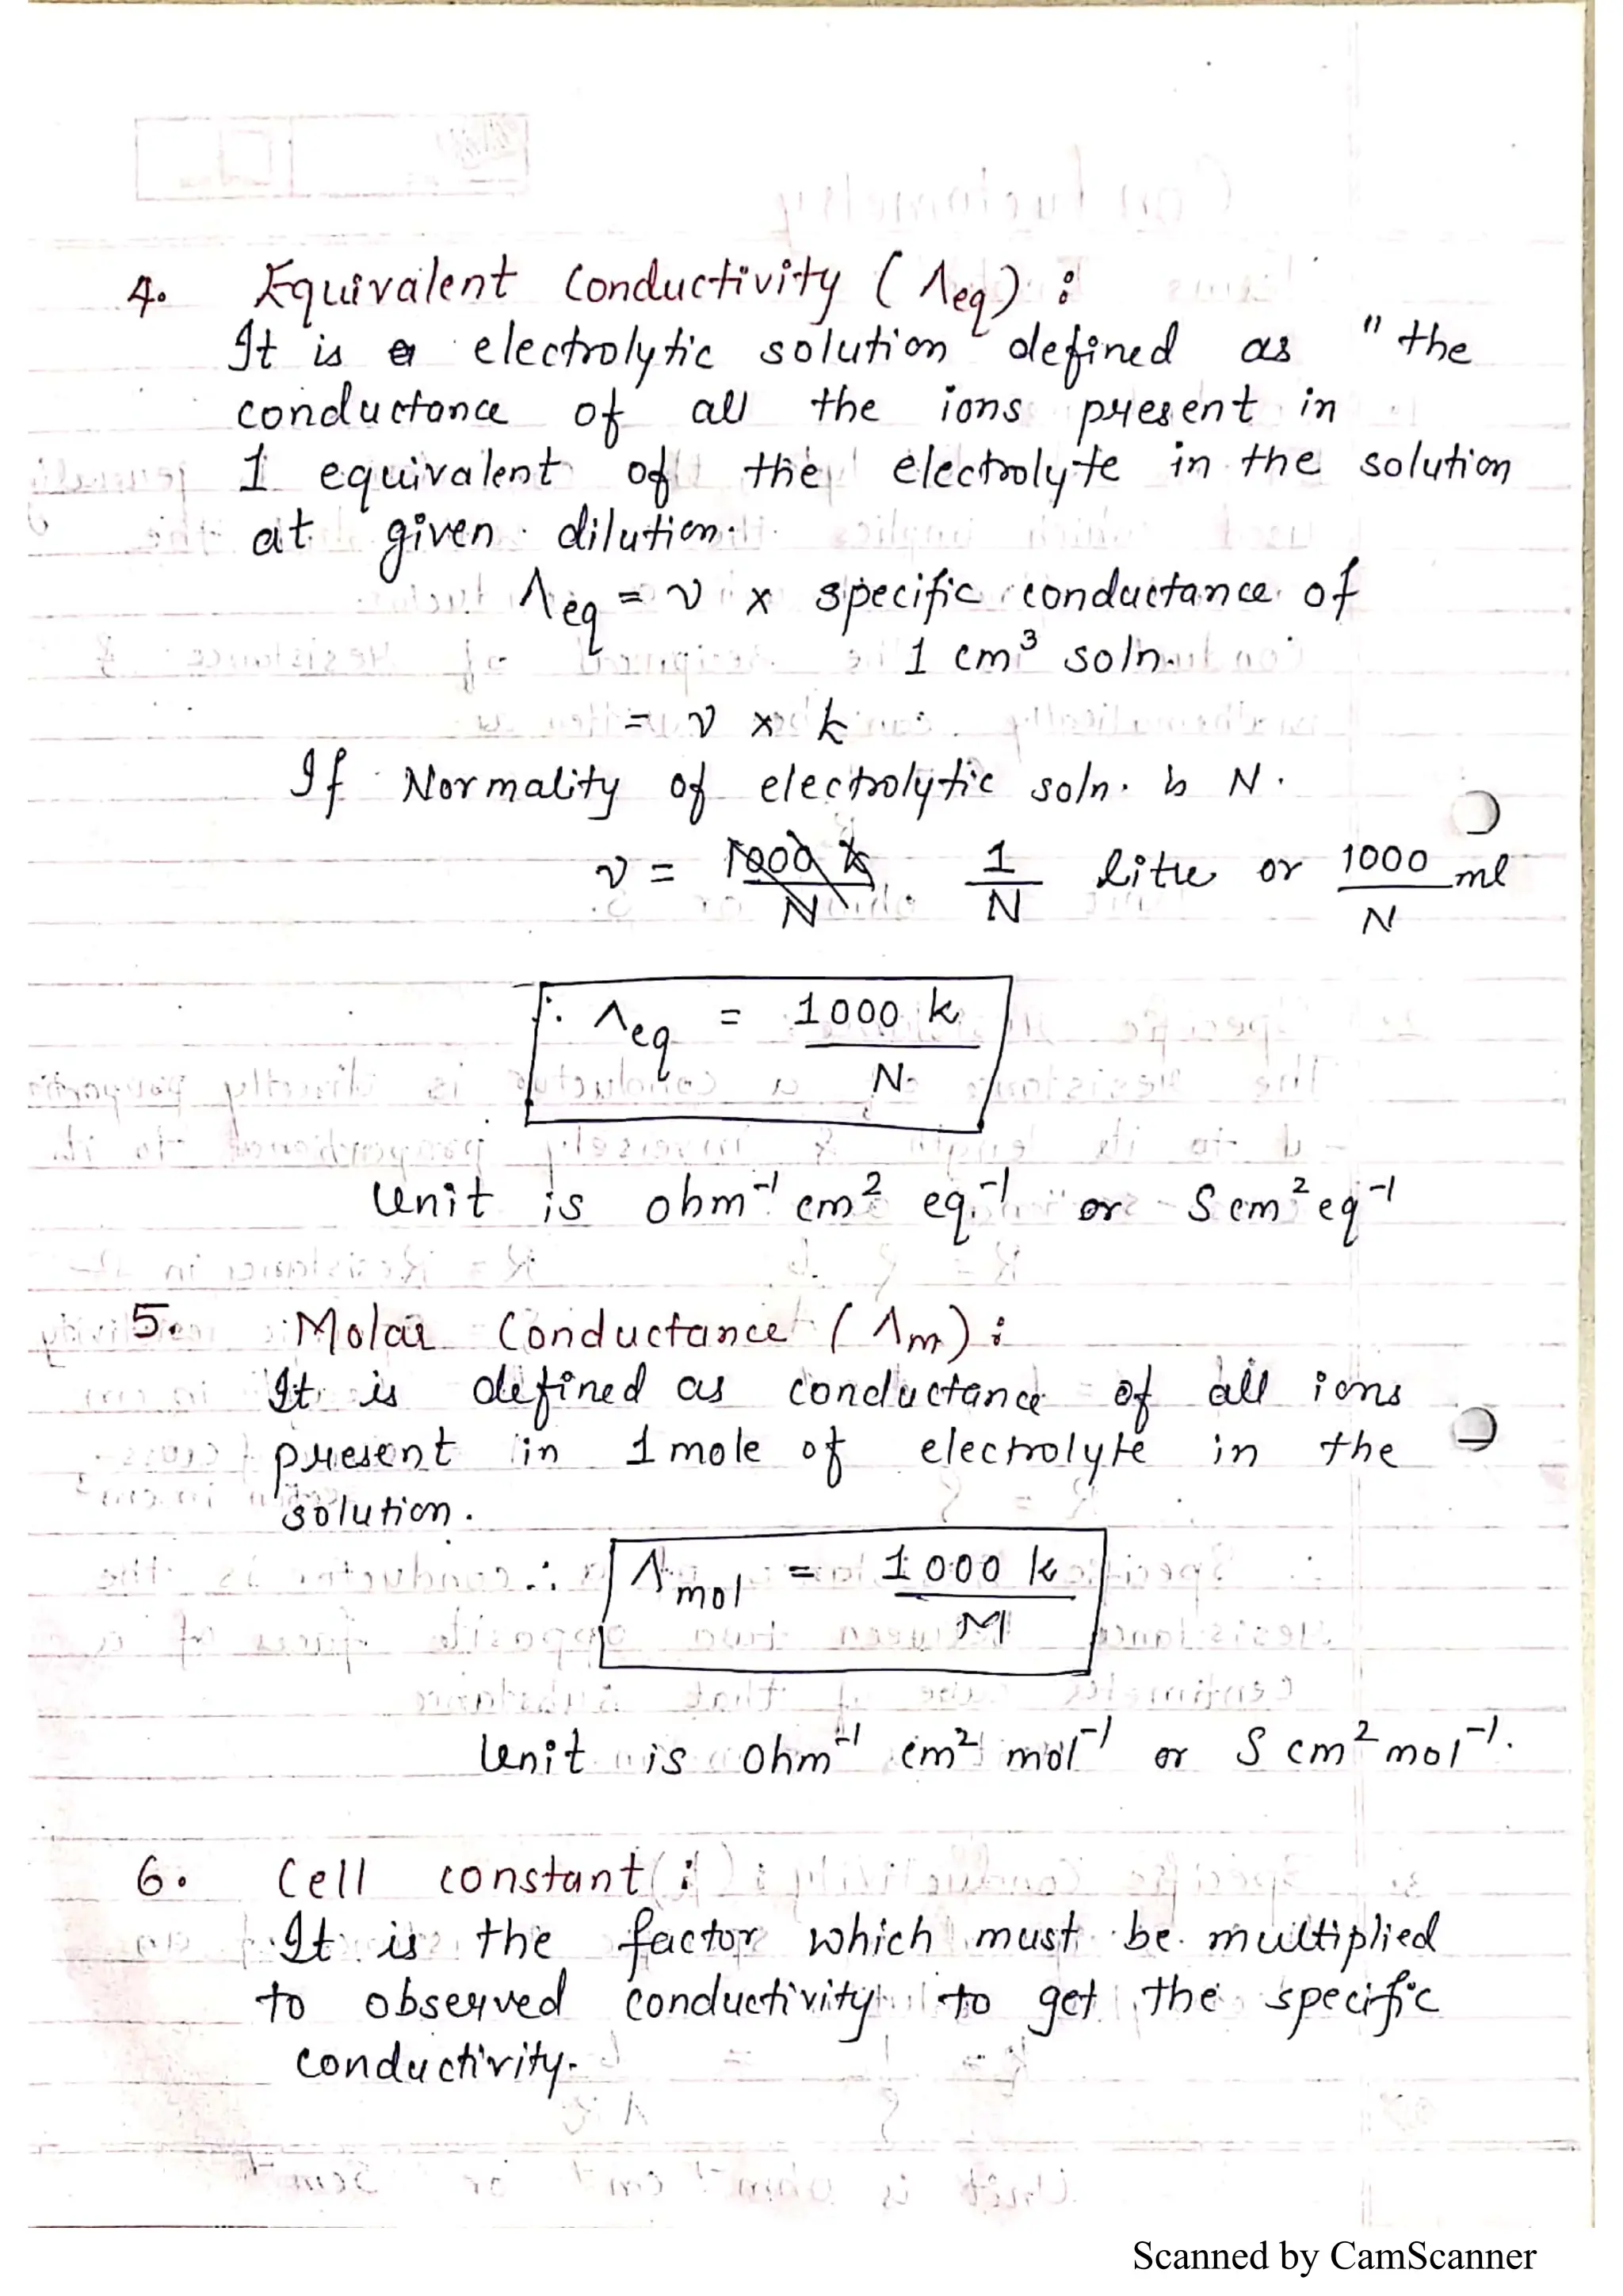 4. Equivalent Conductivity (Λeq) :
It is electrolytic solution defined as "the
conductance of all the ions present in
1 equivalent of the electrolyte in the solution
at given dilution.
Λeq = v x specific conductance of
1 cm³ soln.
= v x k
If Normality of electrolytic soln. is N.
v = 1000 k/N 1/N litre or 1000/N ml
∴ Λeq = 1000 k/N
Unit is ohm⁻¹ cm² eq.⁻¹ or S cm² eq⁻¹
5. Molar Conductance (Λm) :
It is defined as conductance of all ions
present in 1 mole of electrolyte in the
solution.
∴ Λmol = 1000 k/M
Unit is ohm⁻¹ cm² mol⁻¹ or S cm² mol⁻¹.
6. Cell constant :
It is the factor which must be multiplied
to observed conductivity to get the specific
conductivity.
Scanned by CamScanner